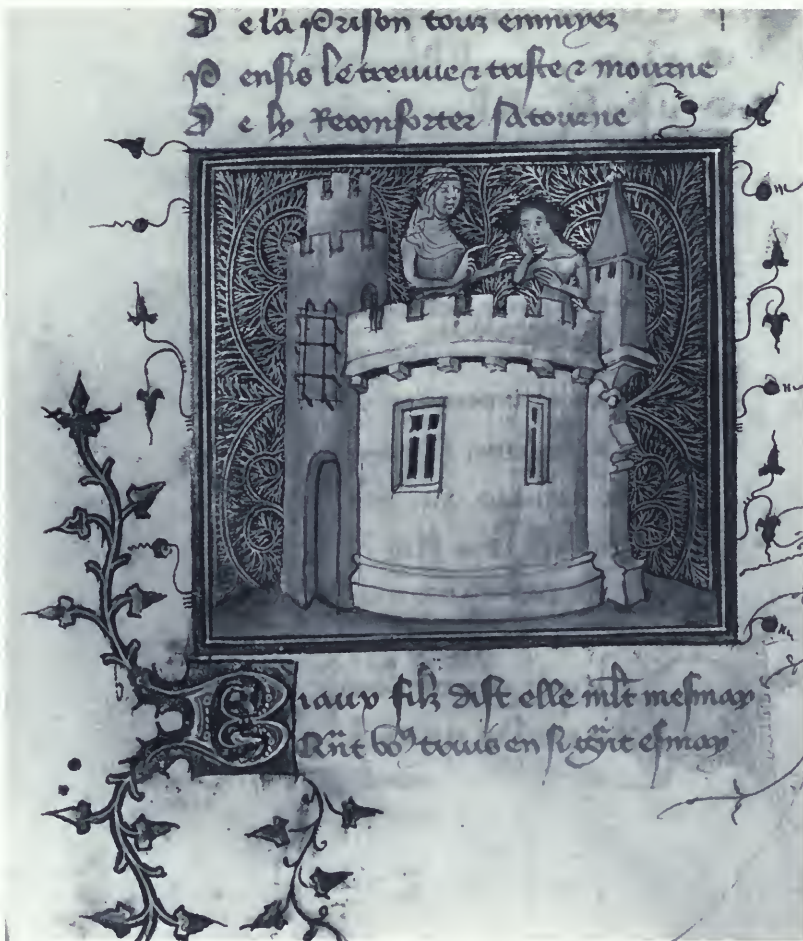 D e la prison touz ennuyez
P ensis le treuve & triste & mourne
D e ly Reconforter satourne
Biaux filz dist elle ml̃t mesmay
Qñt voꝰ truis en si gñt esmay